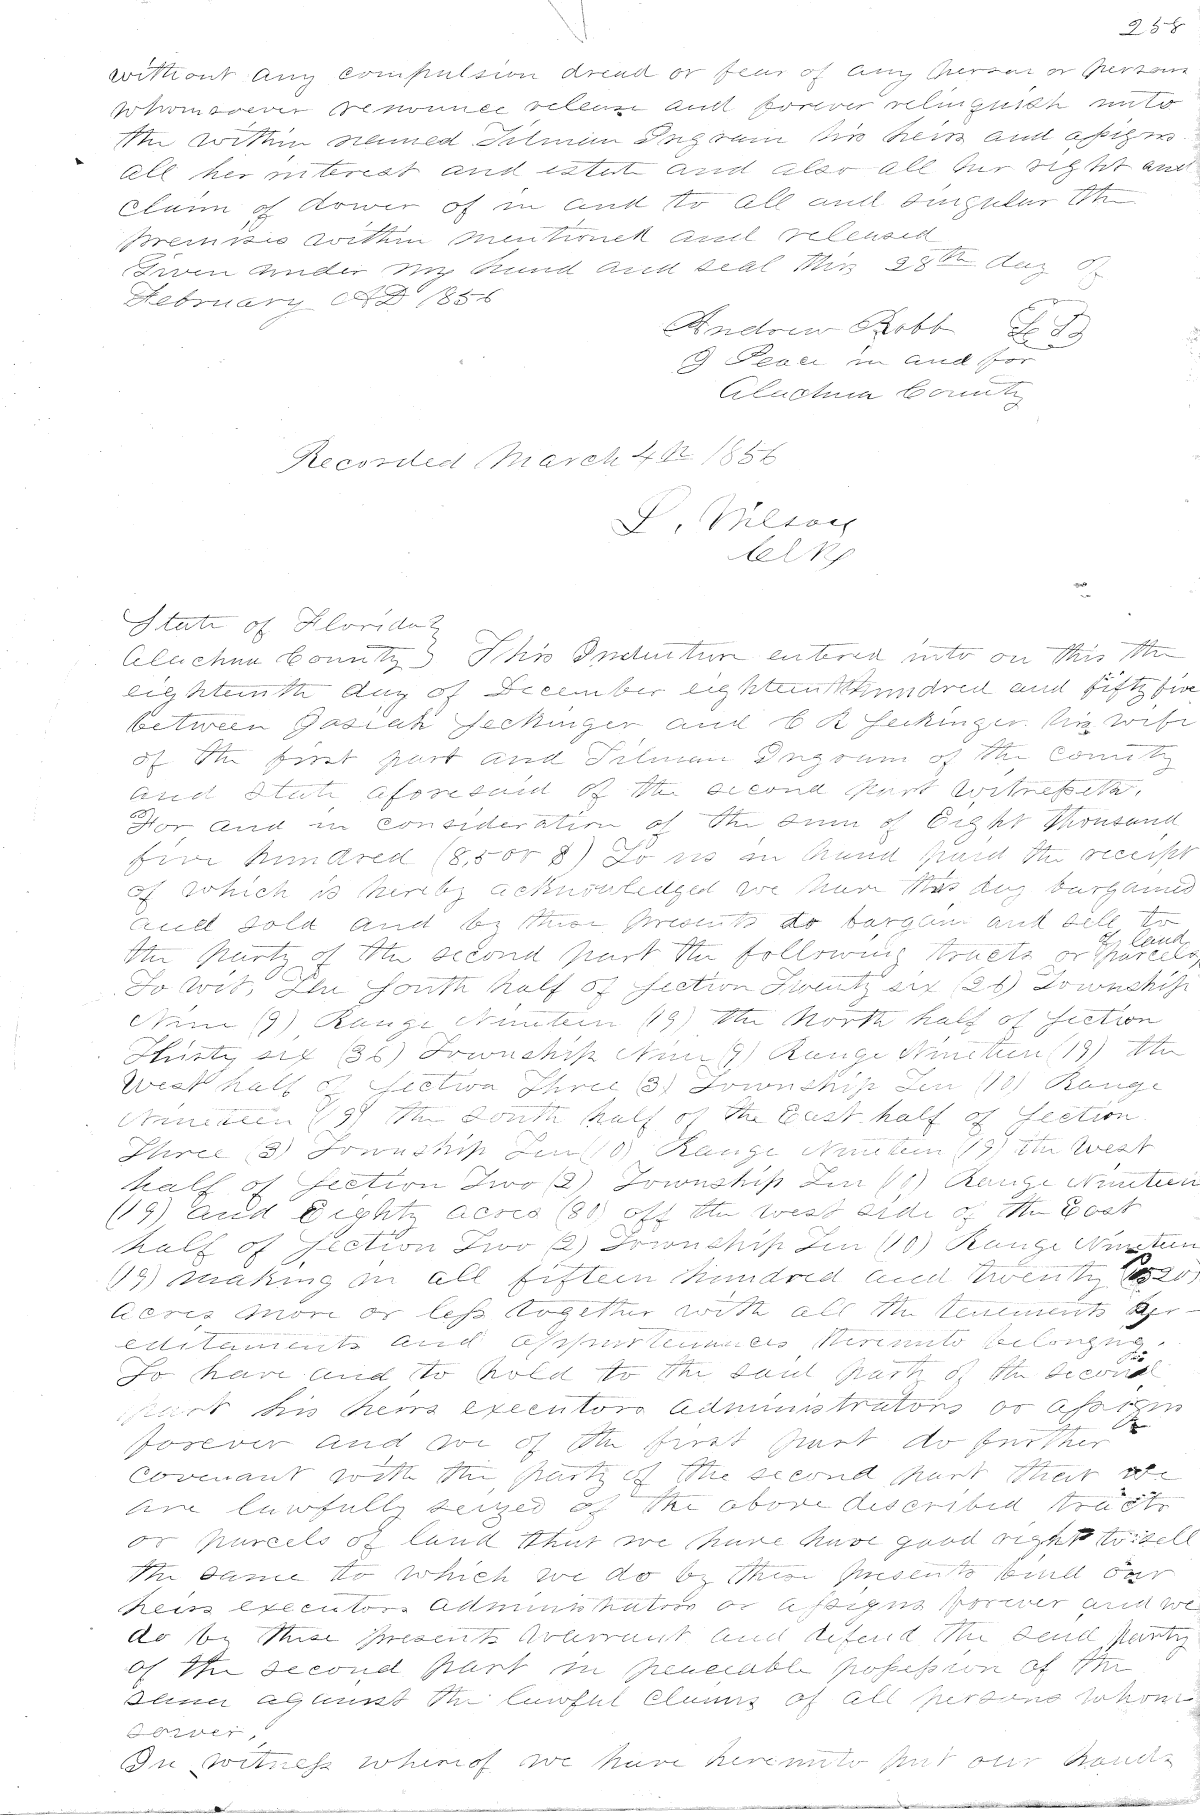 258
without any compulsion dread or fear of any person or persons
whomsoever renounce release and forever relinquish unto
the within named Tilman Ingram his heirs and assigns
all her interest and estate and also all her right and
claim of dower of in and to all and singular the
premises within mentioned and released
Given under my hand and seal this 28th day of
February AD 1856
Andrew Robb LS
J Peace in and for
Alachua County
Recorded March 4th 1856
L. Wilson
Clk
State of Florida
Alachua County } This Indenture entered into on this the
eighteenth day of December eighteen hundred and fifty five
between Josiah Seckinger and C R Seckinger his wife
of the first part and Tilman Ingram of the county
and State aforesaid of the second part Witnesseth.
For and in consideration of the sum of Eight thousand
five hundred (8,500 $) To us in hand paid the receipt
of which is hereby acknowledged we have this day bargained
and sold and by these presents do bargain and sell to
the party of the second part the following tracts or parcels of land
To wit, The South half of Section Twenty six (26) Township
Nine (9) Range Nineteen (19) the North half of Section
Thirty six (36) Township Nine (9) Range Nineteen (19) the
West half of Section Three (3) Township Ten (10) Range
Nineteen (19) the South half of the East half of Section
Three (3) Township Ten (10) Range Nineteen (19) the West
half of Section Two (2) Township Ten (10) Range Nineteen
(19) and Eighty acres (80) off the west side of the East
half of Section Two (2) Township Ten (10) Range Nineteen
(19) making in all fifteen hundred and twenty (1520)
acres more or less together with all the tenements her-
editaments and appurtenances thereunto belonging.
To have and to hold to the said party of the second
part his heirs executors administrators or assigns
forever and we of the first part do further
covenant with the party of the second part that we
are lawfully seized of the above described tracts
or parcels of land that we have have good right to sell
the same to which we do by these presents bind our
heirs executors administrators or assigns forever and we
do by these presents warrant and defend the said party
of the second part in peaceable possession of the
same against the lawful claims of all persons whom
soever.
In witness whereof we have hereunto put our hands